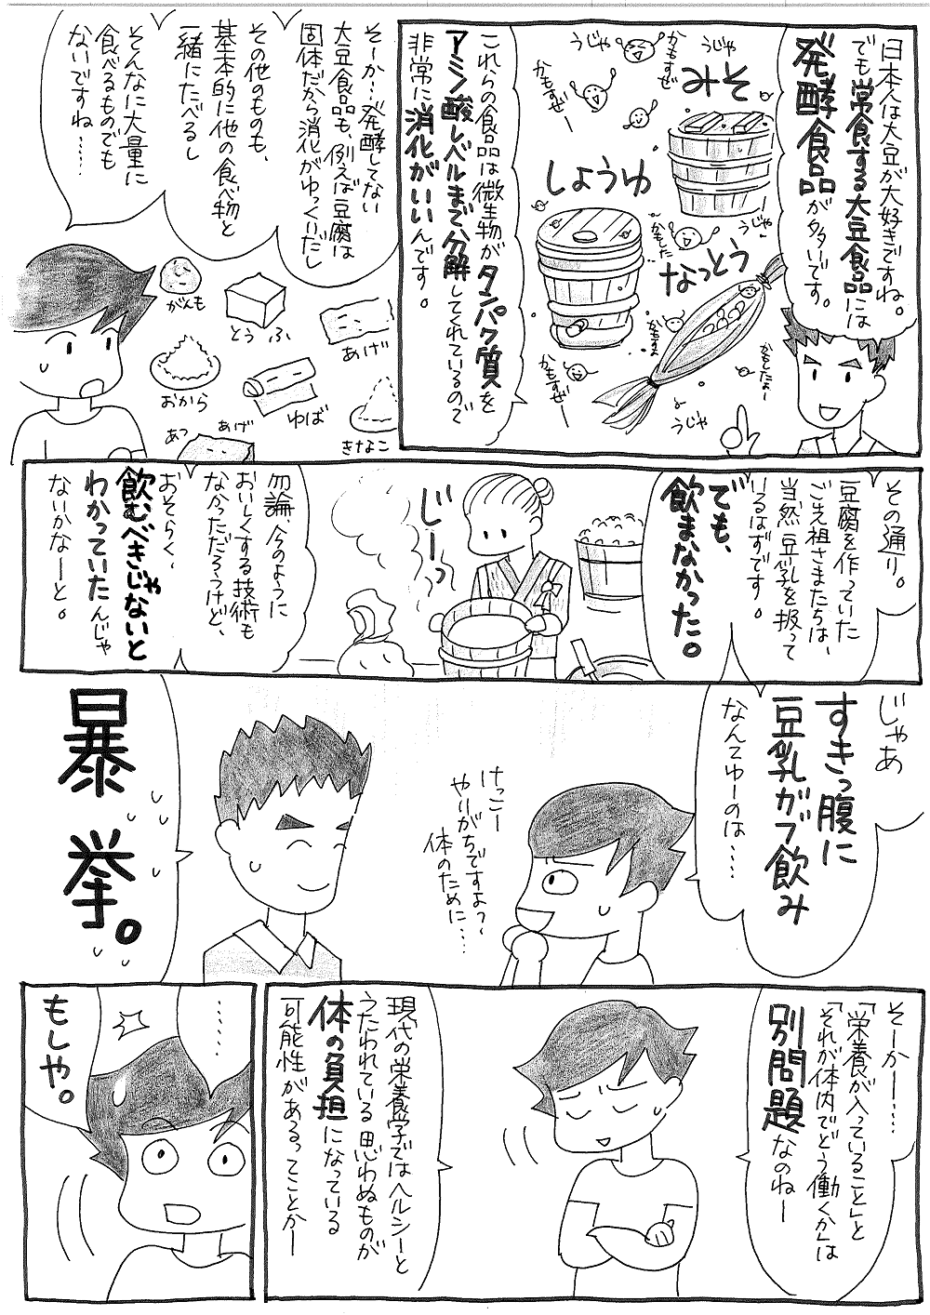 日本人は大豆が大好きですね。
でも常食する大豆食品には
発酵食品
が多いです。
うじゃ
かもすぞ
うじゃ
かもすぞ
かもすぞー
みそ
しょうゆ
うじゃ
かもした
なっとう
かもすぞー
かもしたよー
うじゃ
これらの食品は微生物がタンパク質を
アミノ酸レベルまで分解してくれているので
非常に消化がいいんです。
そーか…発酵してない
大豆食品も、例えば豆腐は
固体だから消化がゆっくりだし
その他のものも、
基本的に他の食べ物と
一緒にたべるし
そんなに大量に
食べるものでも
ないですね……
がんも
とうふ
あげ
おから
ゆば
あつあげ
きなこ
その通り。
豆腐を作っていた
ご先祖さまたちは、
当然豆乳を扱って
いるはずです。
でも、
飲まなかった。
じーっ
勿論、今のように
おいしくする技術も
なかっただろうけど、
おそらく、
飲むべきじゃないと
わかっていたんじゃ
ないかなーと。
じゃあ
すきっ腹に
豆乳ガブ飲み
なんてゆーのは……
けっこー
やりがちですよっ
体のために…
暴挙。
そーかー……
「栄養が入っていること」と
「それが体内でどう働くか」は
別問題なのねー
現代の栄養学ではヘルシーと
うたわれている思わぬものが
体の負担になっている
可能性があるってことかー
……
もしや。